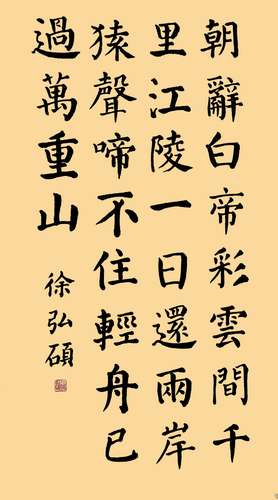 朝辭白帝彩雲間千
里江陵一日還兩岸
猿聲啼不住輕舟已
過萬重山
徐弘碩